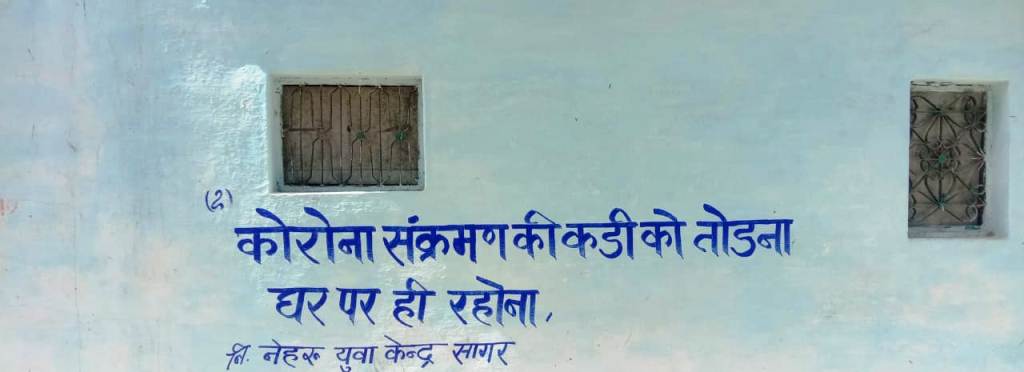 (2)
कोरोना संक्रमण की कडी को तोडना
घर पर ही रहोना,
नि. नेहरू युवा केन्द्र सागर